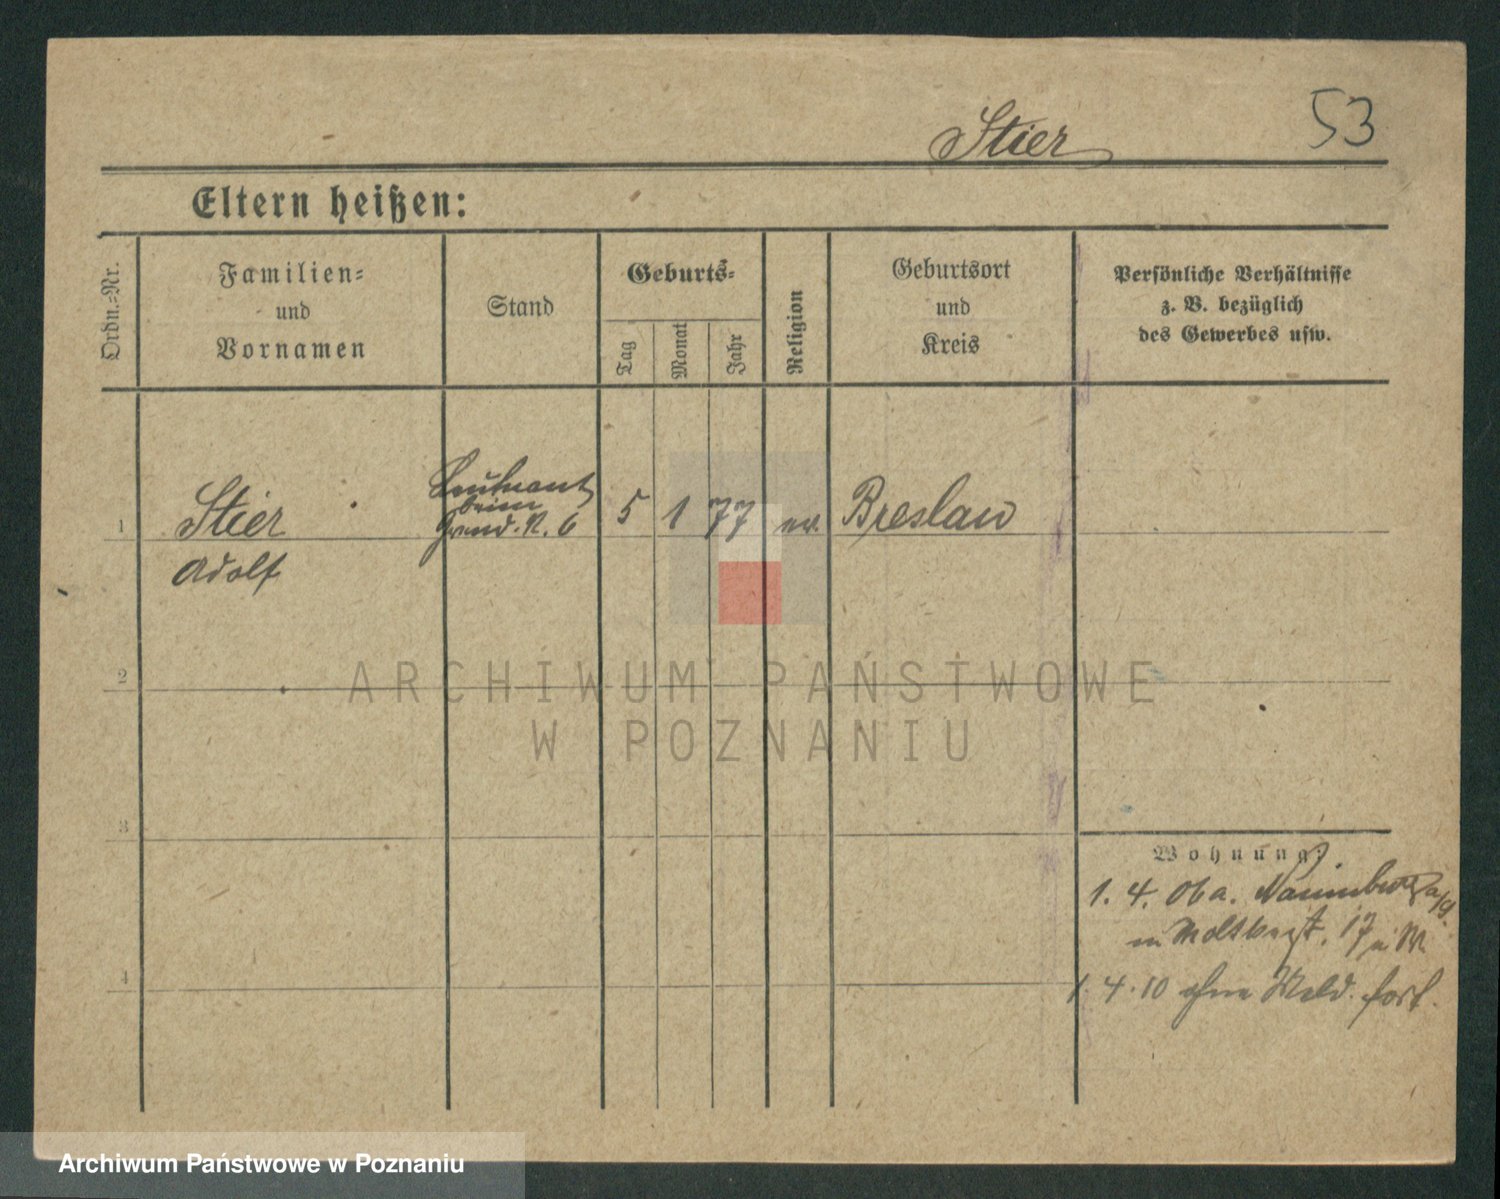 Stier
53
Eltern heißen:
Ordn.=Nr.
Familien=
und
Vornamen
Stand
Geburts=
Tag
Monat
Jahr
Religion
Geburtsort
und
Kreis
Persönliche Verhältnisse
z. B. bezüglich
des Gewerbes usw.
1
Stier
Adolf
Leutnant
beim
Gren. R. 6
5 1 77 ev. Breslau
2
3
4
Wohnung:
1. 4. 06 a. Naumburg a/S.
17
1. 4. 10 ohne Meld. fort.
ARCHIWUM PAŃSTWOWE
W POZNANIU
Archiwum Państwowe w Poznaniu